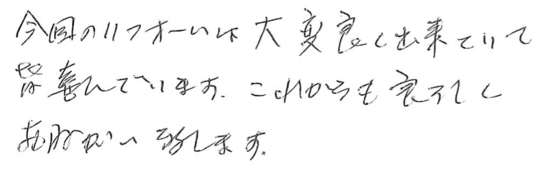 今回のリフォームは大変良く出来ていて
皆喜んでいます。これからも宜ろしく
お願い致します。